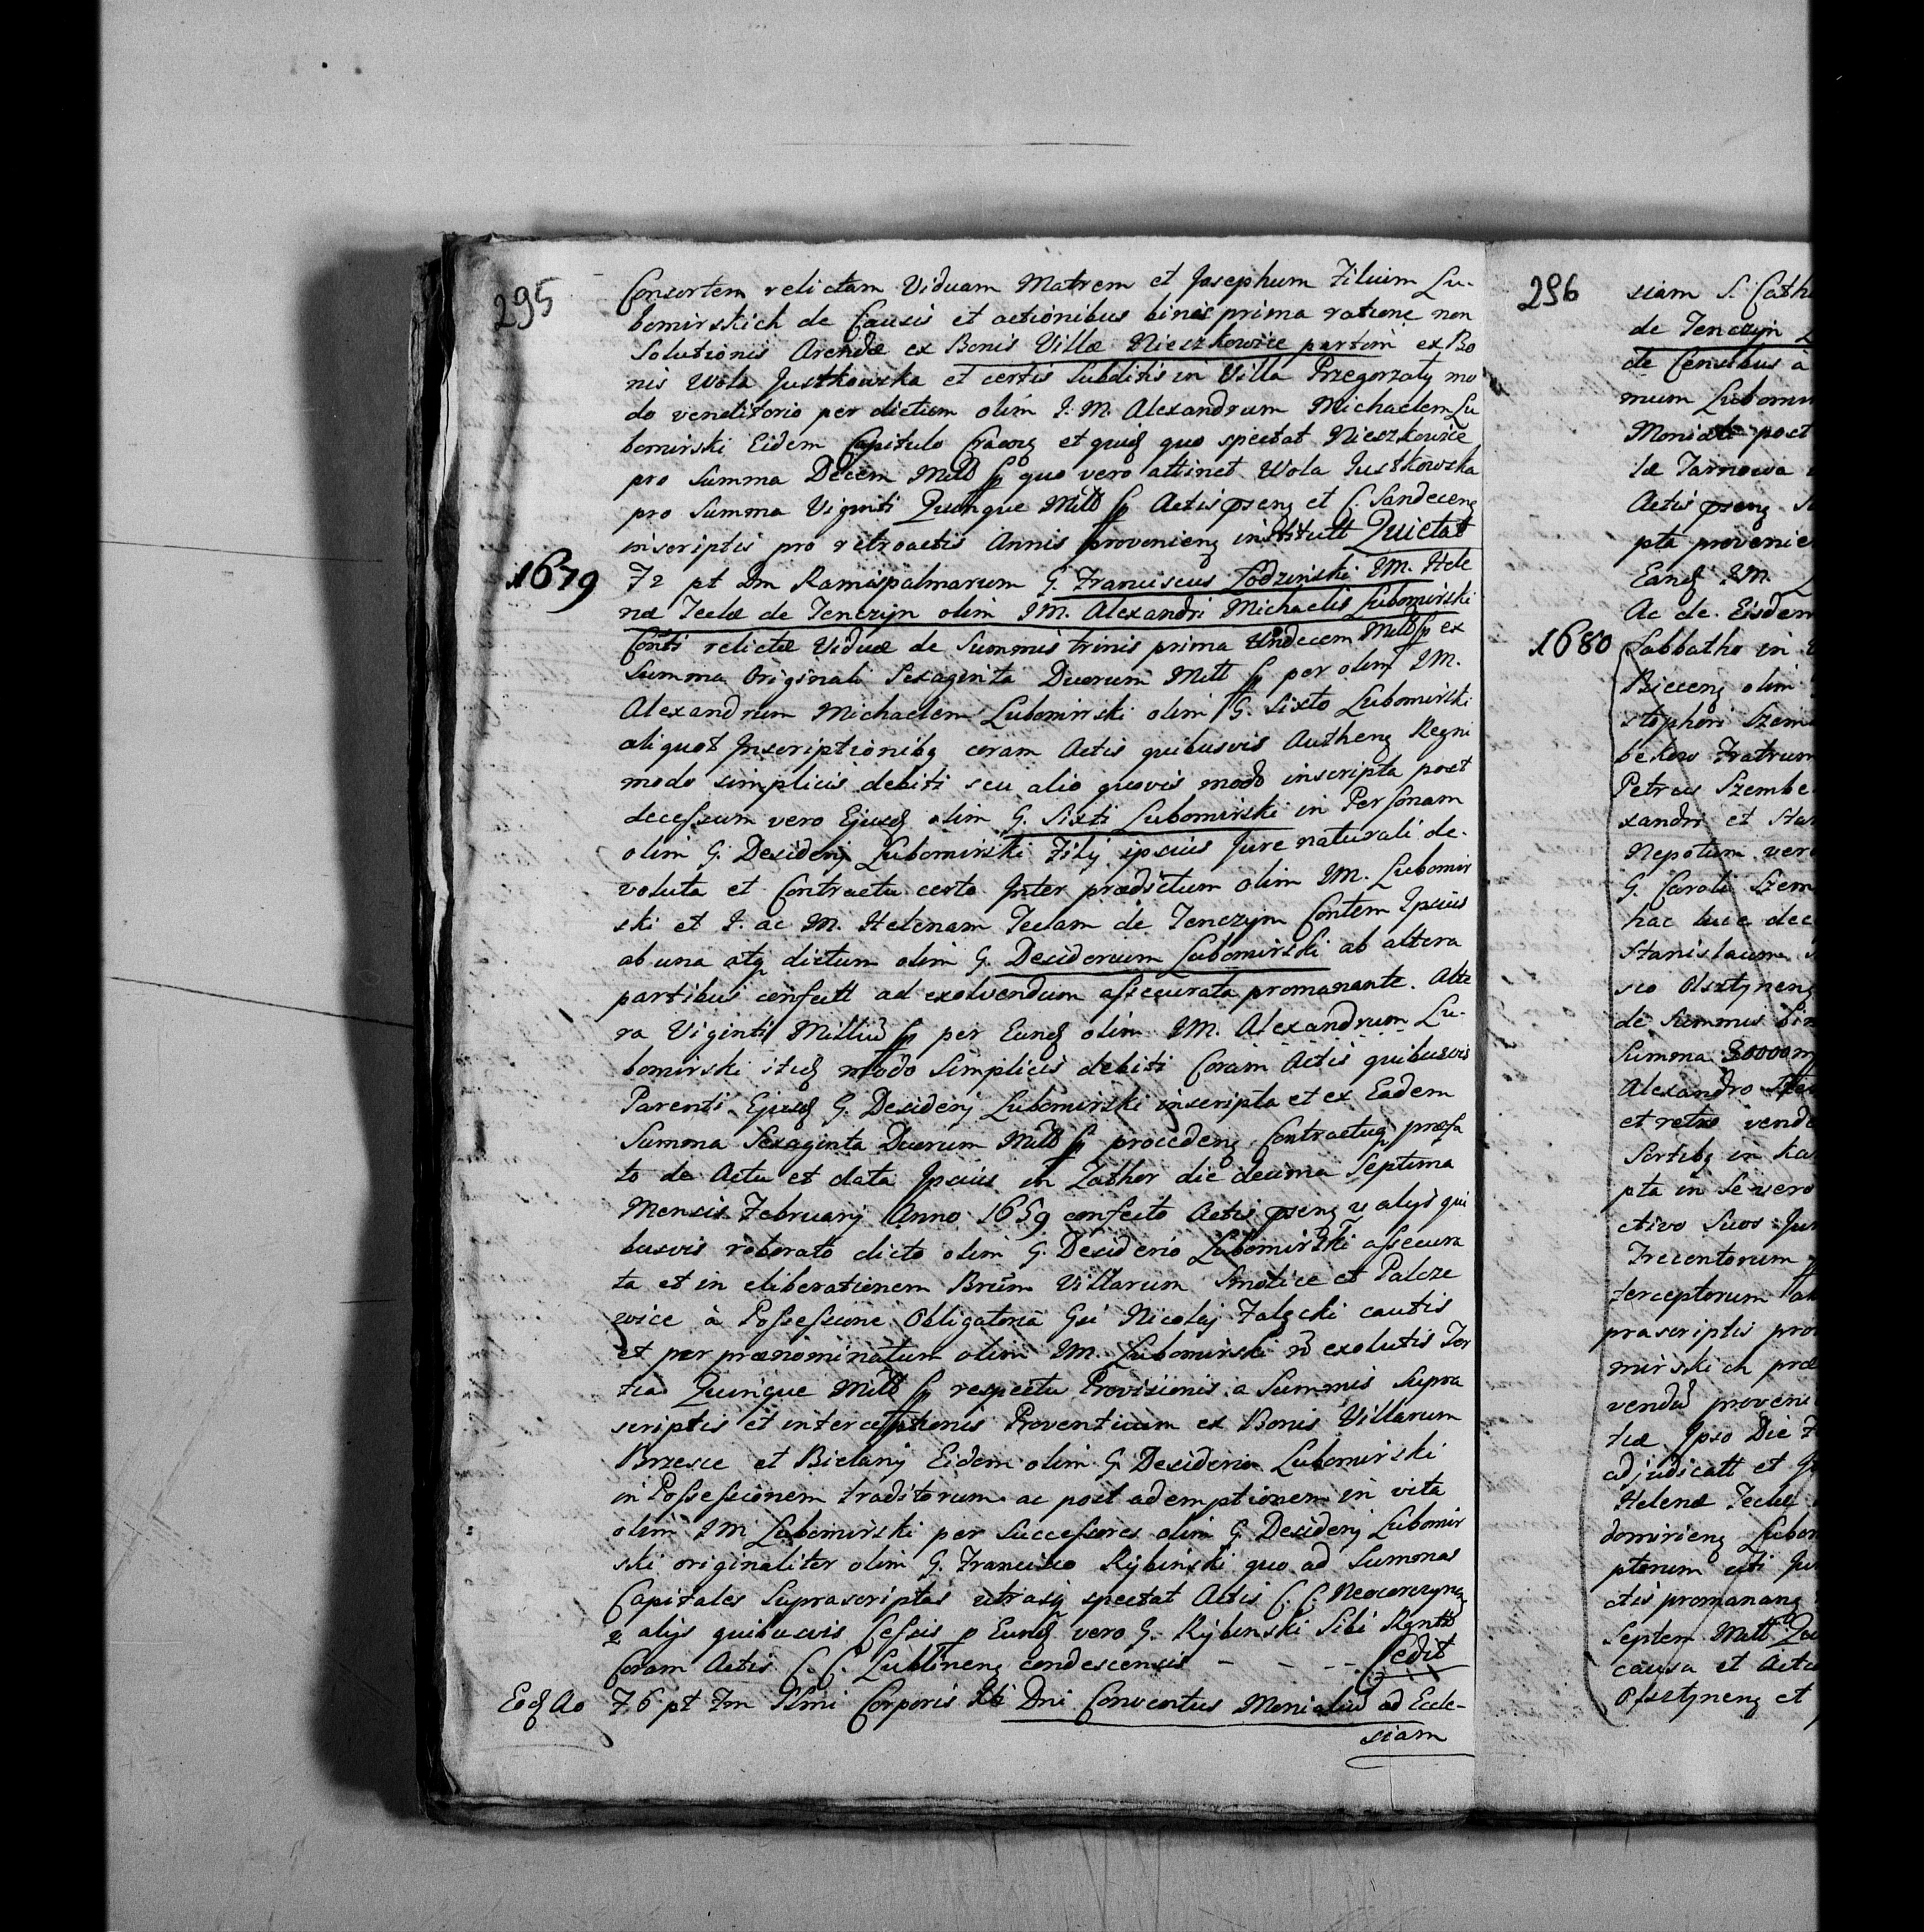 295
Consortem relictam Viduam Matrem et Josephum Filium Lu-
bomirskich de Causis et actionibus binis prima ratione non
Solutionis Arendæ ex Bonis Villæ Nieszkowice partim ex Bo
nis Wola Justkowska et certis Subditis in Villa Przegorzały mo
do venditorio per dictum olim I. M. Alexandrum Michaelem Lu
bomirski Eidem Capitulo Cracog et quidg quo spectat Nieszkowice
pro Summa Decem Mill fp quo vero attinet Wola Justkowska
pro Summa Viginti Quinque Mill fp Actis pseng et C. Sandeceng
inscriptis pro retroactis Annis provenieng institutt Quictat
1679 F2 pt Dm Ramispalmarum G. Franciscus Łodziński IM. Hele
næ Teclæ de Tenczyn olim IM. Alexandri Michaelis Lubomirski
Conti relictæ Viduæ de Summis trinis prima Undecem Mill fp ex
Summa Originali Sexaginta Duorum Mill fp per olim IM.
Alexandrum Michaelem Lubomirski olim G. Sixto Lubomirski
aliquot Inscriptionibg coram Actis quibusvis Autheng Regni
modo simplicis debiti seu alio quovis modo inscripta post
decessum vero Ejusdg olim G. Sixti Lubomirski in Personam
olim G. Desiderij Lubomirski Filij ipsius Jure naturali de-
voluta et Contractu certo Inter prædictum olim IM. Lubomir
ski et I. ac M. Helenam Teclam de Tenczyn Contem Ipsius
ab una atq dictum olim G. Desiderium Lubomirski ab altera
partibus confectt ad exolvendum assecurata promanante. Alte
ra Viginti Milliu fp per Eundg olim IM. Alexandrum Lu-
bomirski itidg modo Simplicis debiti Coram Actis quibusvis
Parenti Ejusdg G. Desiderij Lubomirski inscripta et ex Eadem
Summa Sexaginta Duorum Mill fp procedeng Contractuq præfa
to de Actu et data Ipsius in Zathor die decima Septima
Mensis February Anno 1659 confecto Actis pseng v alijs qui
busvis roborato dicto olim G. Desiderio Lubomirski assecura
ta et in eliberationem Brum Villarum Smolice et Palcze
wice à Possessione Obligatoria Gsi Nicolaj Zalęcki cautis
et per prænominatum olim IM. Lubomirski n exolutis Ter
tia Quinque Mill fp respectu Provisionis a Summis Supra
scriptis et interceptionis Proventuum ex Bonis Villarum
Brzescie et Bielany Eidem olim G. Desiderio Lubomirski
in Possessionem traditorum ac post ademptionem in vita
olim IM Lubomirski per Successores olim G. Desiderij Lubomir
ski originaliter olim G. Francisco Rybinski quo ad Summas
Capitales Suprascriptas utrasq spectat Actis C. C. Neocorczyneg
v alijs quibusvis Cessis p Eundg vero G. Rybinski Sibi Rgntt
Coram Actis C. C. Lublineng condescensis - - - Cedit
Eodg Ao F. 6 pt Fm SSmi Corporis Xti Dni Conventus Monialiu ad Eccle-
siam
296
siam S. Cath
de Tenczyn L
de Censibus à
mum Lubomi
Moniali post
læ Tarnowa
Actis pseng
pta provenie
Eandg IM.
Ac de Eisdem
1680 Sabbatho in
Bieceng olim
stophori Szem
bekow Fratrum
Petrus Szembe
xandri et Sta
Nepotum vero
G. Caroli Szem
hac luce dec
Stanislaum
sco Olsztyneng
de Summis bin
Summa 30000
Alexandro
et retro vende
Sortibg in
pta in Se vero
ctivo Suos
Trecentorum
terceptorum
præscriptis pro
mirskich præ
vendi proveni
tiæ Ipso Die
adjudicatt et
Helenæ Teclæ
domirieng Lubo
ptorum
ctis promanang
Septem Mill
causa et Actio
Olsztyneng et